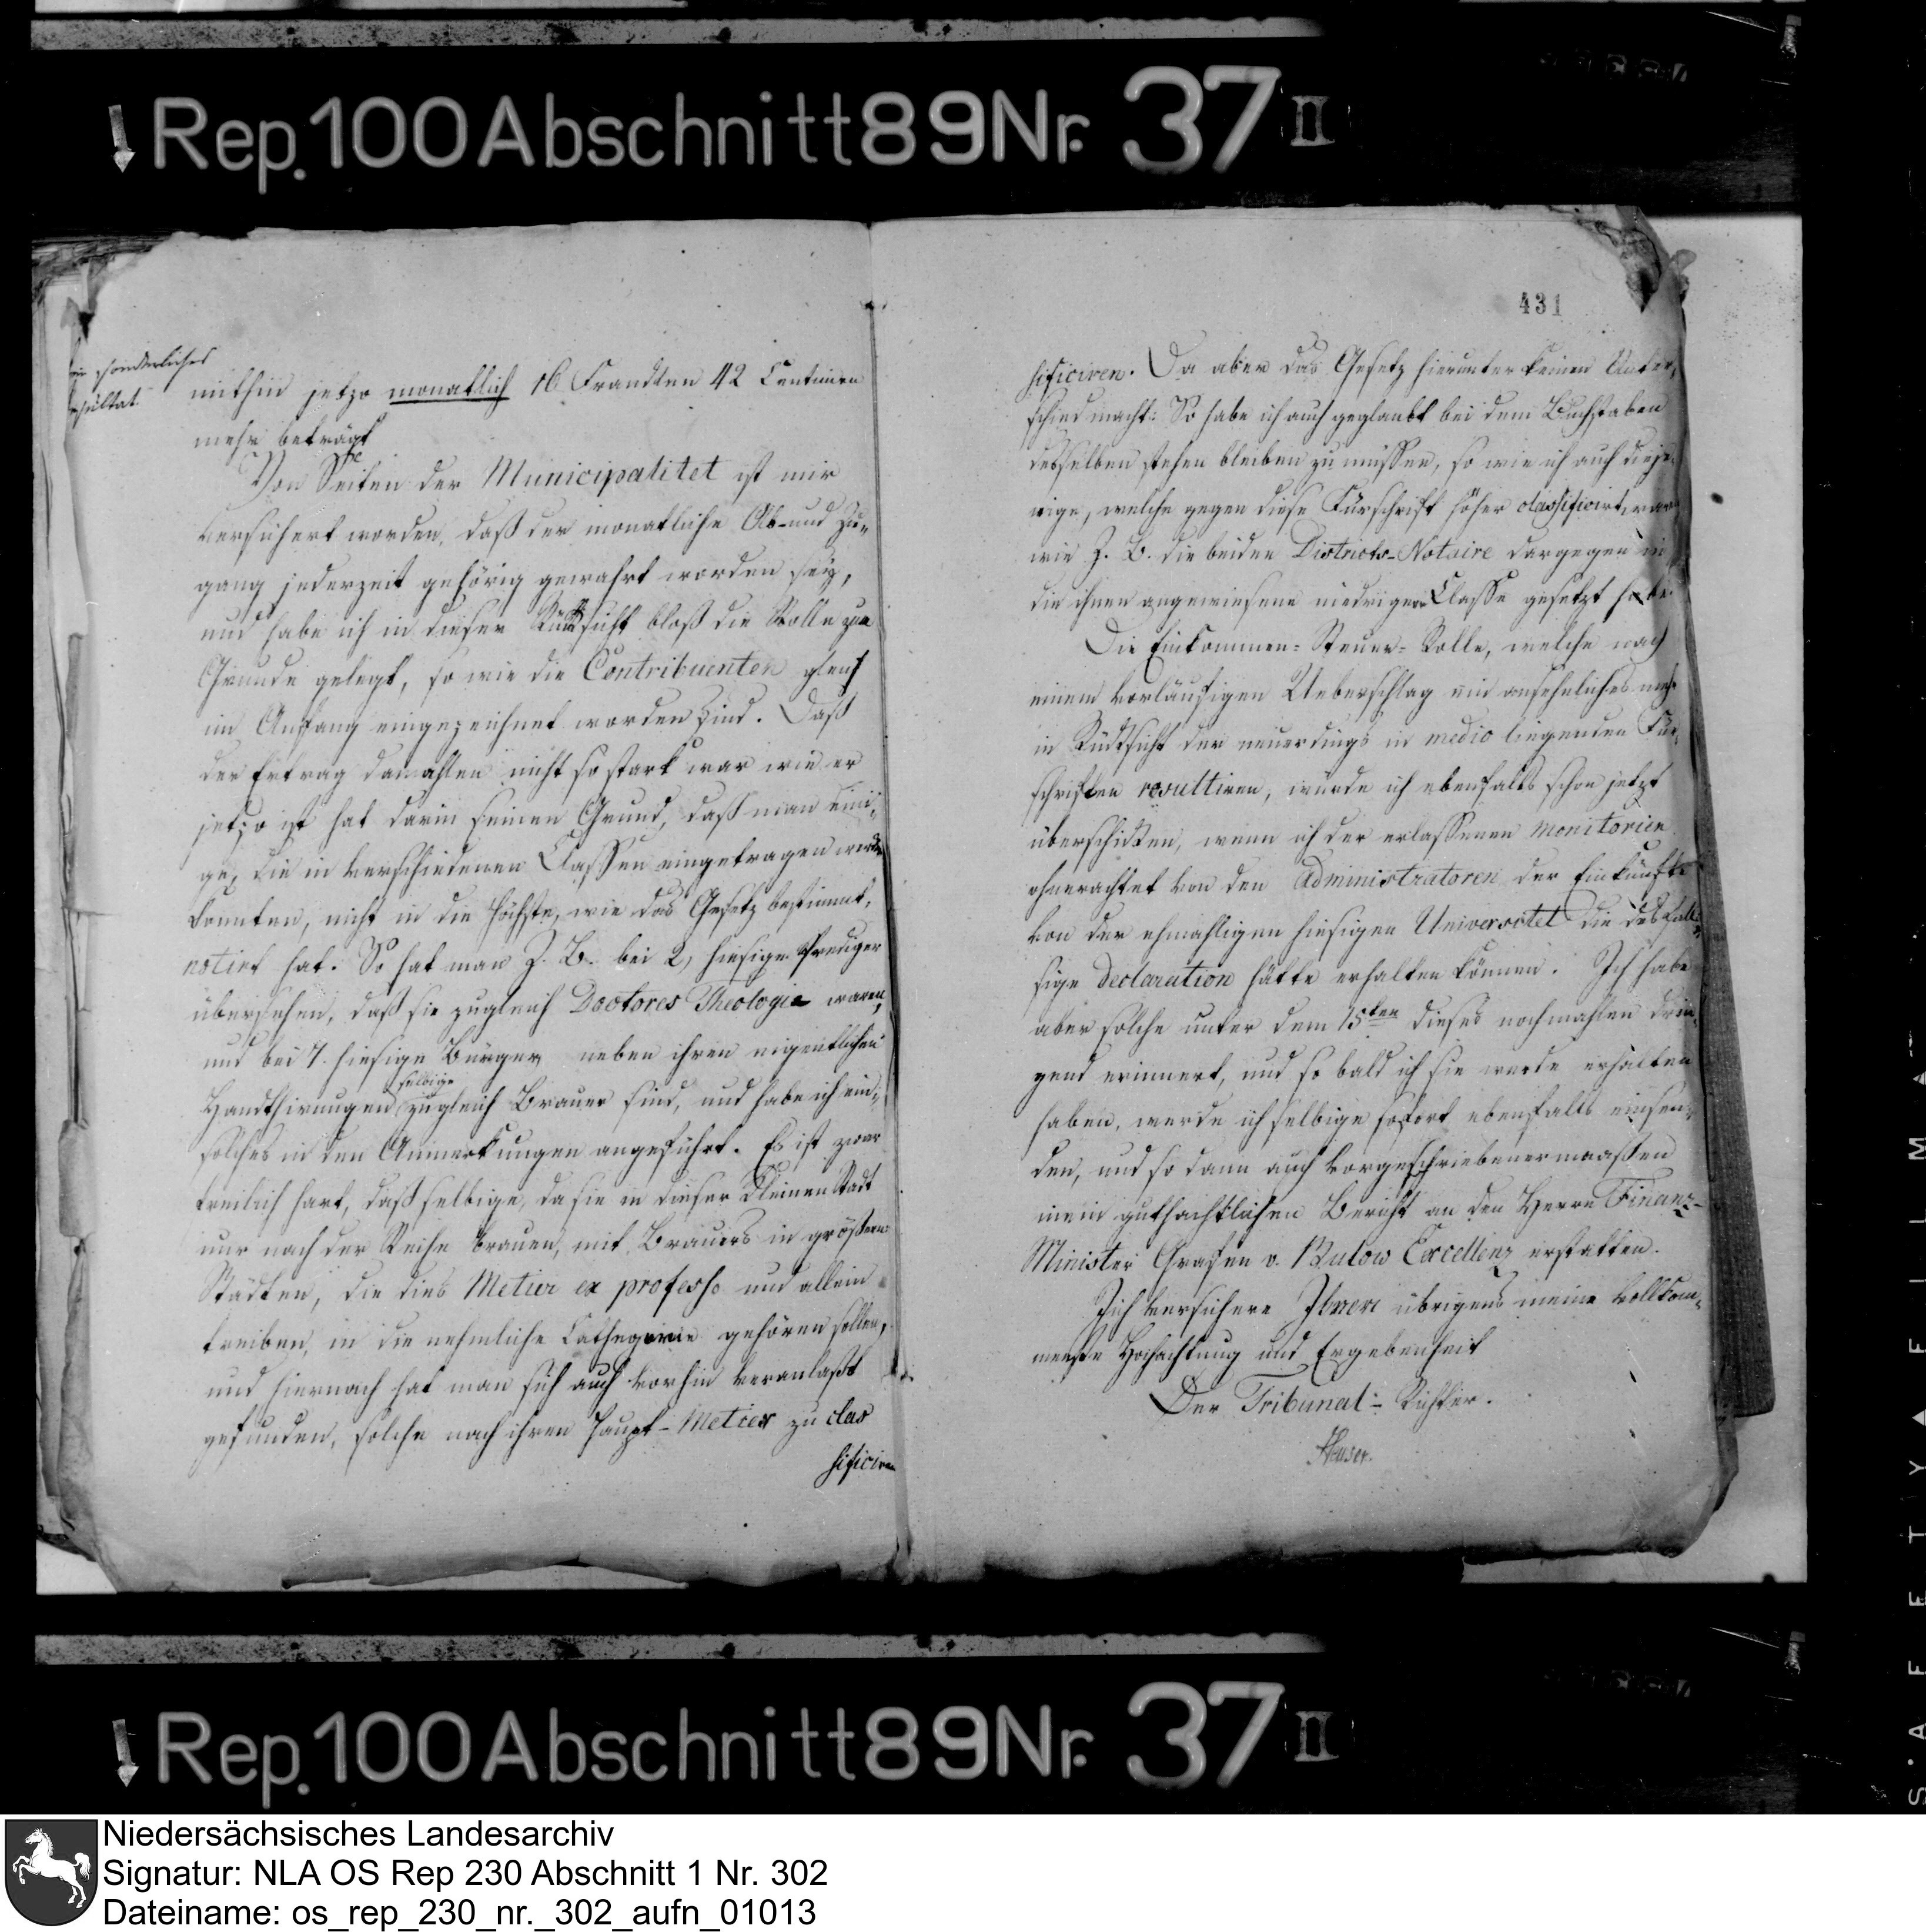 Rep. 100 Abschnitt 89 Nr. 37 II
sonderliches
mithin jetzo monatlich 16 Francken 42 Centimen
mehr beträgt
Von Seiten der Municipalitet ist mir
versichert worden, daß der monatliche Ab- und Zu-
gang jederzeit gehörig gewahrt worden sey,
und habe ich in dieser Rücksicht bloß die Rolle zum
Grunde gelegt, so wie die Contribuenten gleich
im Anfang eingezeichnet worden sind. Daß
der Ertrag damahlen nicht so stark war wie er
jetzo ist hat darin seinen Grund, daß man eini-
ge, die in verschiedenen Classen eingetragen werden
konnten, nicht in die höchste, wie das Gesetz bestimmt,
notirt hat. So hat man Z. B. bei 2, hiesige Prediger
übersehen, daß sie zugleich Doctores Theologie waren,
und bei 7. hiesige Bürger neben ihren eigentlichen
selbige
Handthirungen zugleich Brauer sind, und habe ich
solches in den Anmerkungen angeführt. Es ist zwar
freilich hart, daß selbige, da sie in dieser kleinen Stadt
nur nach der Reihe brauen, mit Brauers in größern
Städten, die dies Metier ex professo und allein
treiben, in die nehmliche Cathegorie gehören sollen,
und hiernach hat man sich auch vorhin veranlaßt
gefunden, solche nach ihren Haupt-Metier zu clas
sificiren
431
sificiren. Da aber das Gesetz hierunter keinen Unter-
schied macht: So habe ich auch geglaubt bei dem Buchstaben
desselben stehen bleiben zu müssen, so wie ich auch dieje-
nige, welche gegen diese Fürschrift höher classificirt waren
wie Z. B. die beiden Districts-Notaire dargegen in
die ihnen angewiesene niedrigere Classe gesetzt habe.
Die Einkommen-Steuer-Rolle, welche nach
einem vorläufigen Ueberschlag ein ansehnliches mehr
in Rücksicht der neuerdings in medio liegenden Für-
schriften resultiren, würde ich ebenfalls schon jetzt
überschicken, wenn ich der erlassenen Monitorien
ohnerachtet von den Administratoren der Einkünfte
von der ehmahligen hiesigen Universitet die desfall-
sige Declaration hätte erhalten können. Ich habe
aber solche unter dem 15ten dieses nochmahlen drin-
gend erinnert, und so bald ich sie werde erhalten
haben, werde ich selbige sofort ebenfalls einsen-
den, und so dann auch vorgeschriebenermaaßen
mein guthachtlichen Bericht an den Herrn Finanz-
Minister Grafen v. Bulow Excellenz erstatten.
Ich versichere Ihnen übrigens meine vollkom-
menste Hochachtung und Ergebenheit
Der Tribunal-Richter.
Rep. 100 Abschnitt 89 Nr. 37 II
Niedersächsisches Landesarchiv
Signatur: NLA OS Rep 230 Abschnitt 1 Nr. 302
Dateiname: os_rep_230_nr._302_aufn_01013